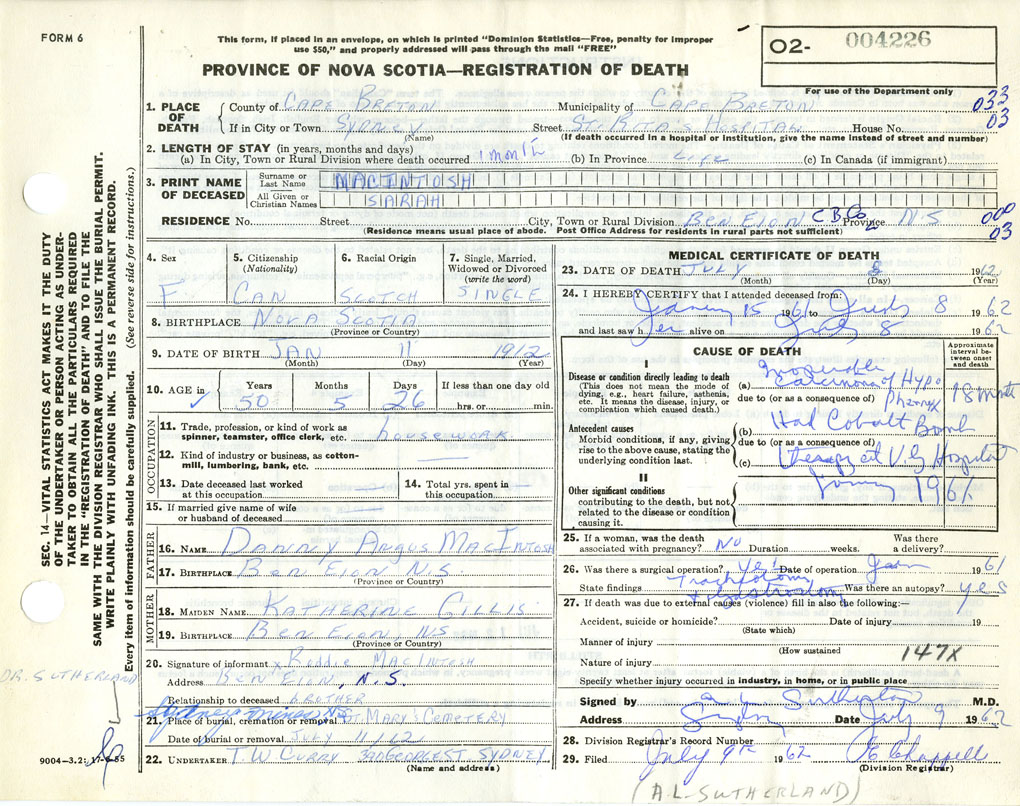 FORM 6
This form, if placed in an envelope, on which is printed "Dominion Statistics—Free, penalty for improper
use $50," and properly addressed will pass through the mail "FREE"
PROVINCE OF NOVA SCOTIA—REGISTRATION OF DEATH
02- 004226
For use of the Department only
1. PLACE OF DEATH County of CAPE BRETON Municipality of CAPE BRETON 033
If in City or Town SYDNEY Street ST. RITA'S HOSPITAL House No. 03
(Name) (If death occurred in a hospital or institution, give the name instead of street and number)
2. LENGTH OF STAY (in years, months and days)
(a) In City, Town or Rural Division where death occurred 1 month (b) In Province LIFE (c) In Canada (if immigrant)
3. PRINT NAME OF DECEASED Surname or Last Name MACINTOSH
All Given or Christian Names SARAH
RESIDENCE No. Street City, Town or Rural Division BEN EION C.B.Co. Province N.S 000
(Residence means usual place of abode. Post Office Address for residents in rural parts not sufficient) 03
4. Sex F
5. Citizenship (Nationality) CAN
6. Racial Origin SCOTCH
7. Single, Married, Widowed or Divorced (write the word) SINGLE
8. BIRTHPLACE NOVA SCOTIA
(Province or Country)
9. DATE OF BIRTH JAN 11 1912
(Month) (Day) (Year)
10. AGE in Years Months Days If less than one day old
50 5 26 hrs. or min.
OCCUPATION
11. Trade, profession, or kind of work as
spinner, teamster, office clerk, etc. housework
12. Kind of industry or business, as cotton-
mill, lumbering, bank, etc.
13. Date deceased last worked
at this occupation
14. Total yrs. spent in
this occupation
15. If married give name of wife
or husband of deceased
FATHER
16. NAME DANNY ANGUS MACINTOSH
17. BIRTHPLACE BEN EION N.S.
(Province or Country)
MOTHER
18. MAIDEN NAME KATHERINE GILLIS
19. BIRTHPLACE BEN EION, N.S
(Province or Country)
20. Signature of informant x Reddie MACINTOSH
Address BEN EION, N.S.
Relationship to deceased brother
Sydney Mines N.S
21. Place of burial, cremation or removal St. MARY'S CEMETERY
Date of burial or removal JULY 11/62
22. UNDERTAKER T.W CURRY GEORGE ST. SYDNEY
(Name and address)
MEDICAL CERTIFICATE OF DEATH
23. DATE OF DEATH JULY 8 1962
(Month) (Day) (Year)
24. I HEREBY CERTIFY that I attended deceased from:
15 1961 to July 8 1962
and last saw her alive on July 8 1962
CAUSE OF DEATH
Approximate interval between onset and death
I
Disease or condition directly leading to death
(This does not mean the mode of
dying, e.g., heart failure, asthenia,
etc. It means the disease, injury, or
complication which caused death.)
(a) Inoperable Carcinoma of Hypo Pharynx 18 month
due to (or as a consequence of)
Antecedent causes
Morbid conditions, if any, giving
rise to the above cause, stating the
underlying condition last.
(b) Had Cobalt Bomb
due to (or as a consequence of)
(c) therapy at V.G Hospital
II
1961
Other significant conditions
contributing to the death, but not
related to the disease or condition
causing it.
25. If a woman, was the death
associated with pregnancy? No Duration weeks. Was there a delivery?
26. Was there a surgical operation? yes Date of operation Jan 1961
State findings Tracheotomy & Gastrostomy Was there an autopsy? yes
27. If death was due to external causes (violence) fill in also the following:—
Accident, suicide or homicide? Date of injury 19
(State which)
Manner of injury
(How sustained
Nature of injury 147X
Specify whether injury occurred in industry, in home, or in public place
Signed by A L Sutherland M.D.
Address Sydney Date July 9 1962
28. Division Registrar's Record Number
29. Filed July 9th 1962 Chappell
(Division Registrar)
(A.L. SUTHERLAND)
SEC. 14—VITAL STATISTICS ACT MAKES IT THE DUTY
OF THE UNDERTAKER OR PERSON ACTING AS UNDER-
TAKER TO OBTAIN ALL THE PARTICULARS REQUIRED
IN THE "REGISTRATION OF DEATH" AND TO FILE THE
SAME WITH THE DIVISION REGISTRAR WHO SHALL ISSUE THE BURIAL PERMIT.
WRITE PLAINLY WITH UNFADING INK. THIS IS A PERMANENT RECORD.
Every item of information should be carefully supplied. (See reverse side for instructions.)
DR. SUTHERLAND